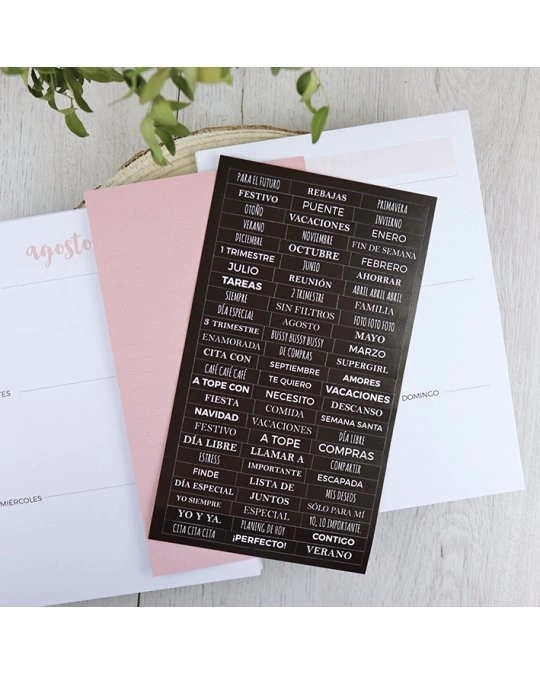 agosto
PARA EL FUTURO REBAJAS PRIMAVERA
FESTIVO PUENTE INVIERNO
OTOÑO VACACIONES ENERO
VERANO NOVIEMBRE FIN DE SEMANA
DICIEMBRE OCTUBRE FEBRERO
1 TRIMESTRE JUNIO AHORRAR
JULIO REUNIÓN ABRIL ABRIL ABRIL
TAREAS 2 TRIMESTRE FAMILIA
SIEMPRE SIN FILTROS FOTO FOTO FOTO
DÍA ESPECIAL AGOSTO MAYO
3 TRIMESTRE BUSSY BUSSY BUSSY MARZO
ENAMORADA DE COMPRAS SUPERGIRL
CITA CON SEPTIEMBRE AMORES
CAFÉ CAFÉ CAFÉ TE QUIERO VACACIONES
A TOPE CON NECESITO DESCANSO
FIESTA COMIDA SEMANA SANTA
NAVIDAD VACACIONES DÍA LIBRE
FESTIVO A TOPE COMPRAS
DÍA LIBRE LLAMAR A COMPARTIR
ESTRESS IMPORTANTE ESCAPADA
FINDE LISTA DE MIS DESEOS
DÍA ESPECIAL JUNTOS SÓLO PARA MÍ
YO SIEMPRE ESPECIAL YO, LO IMPORTANTE.
YO Y YA. PLANING DE HOY CONTIGO
CITA CITA CITA ¡PERFECTO! VERANO
DOMINGO
MIÉRCOLES